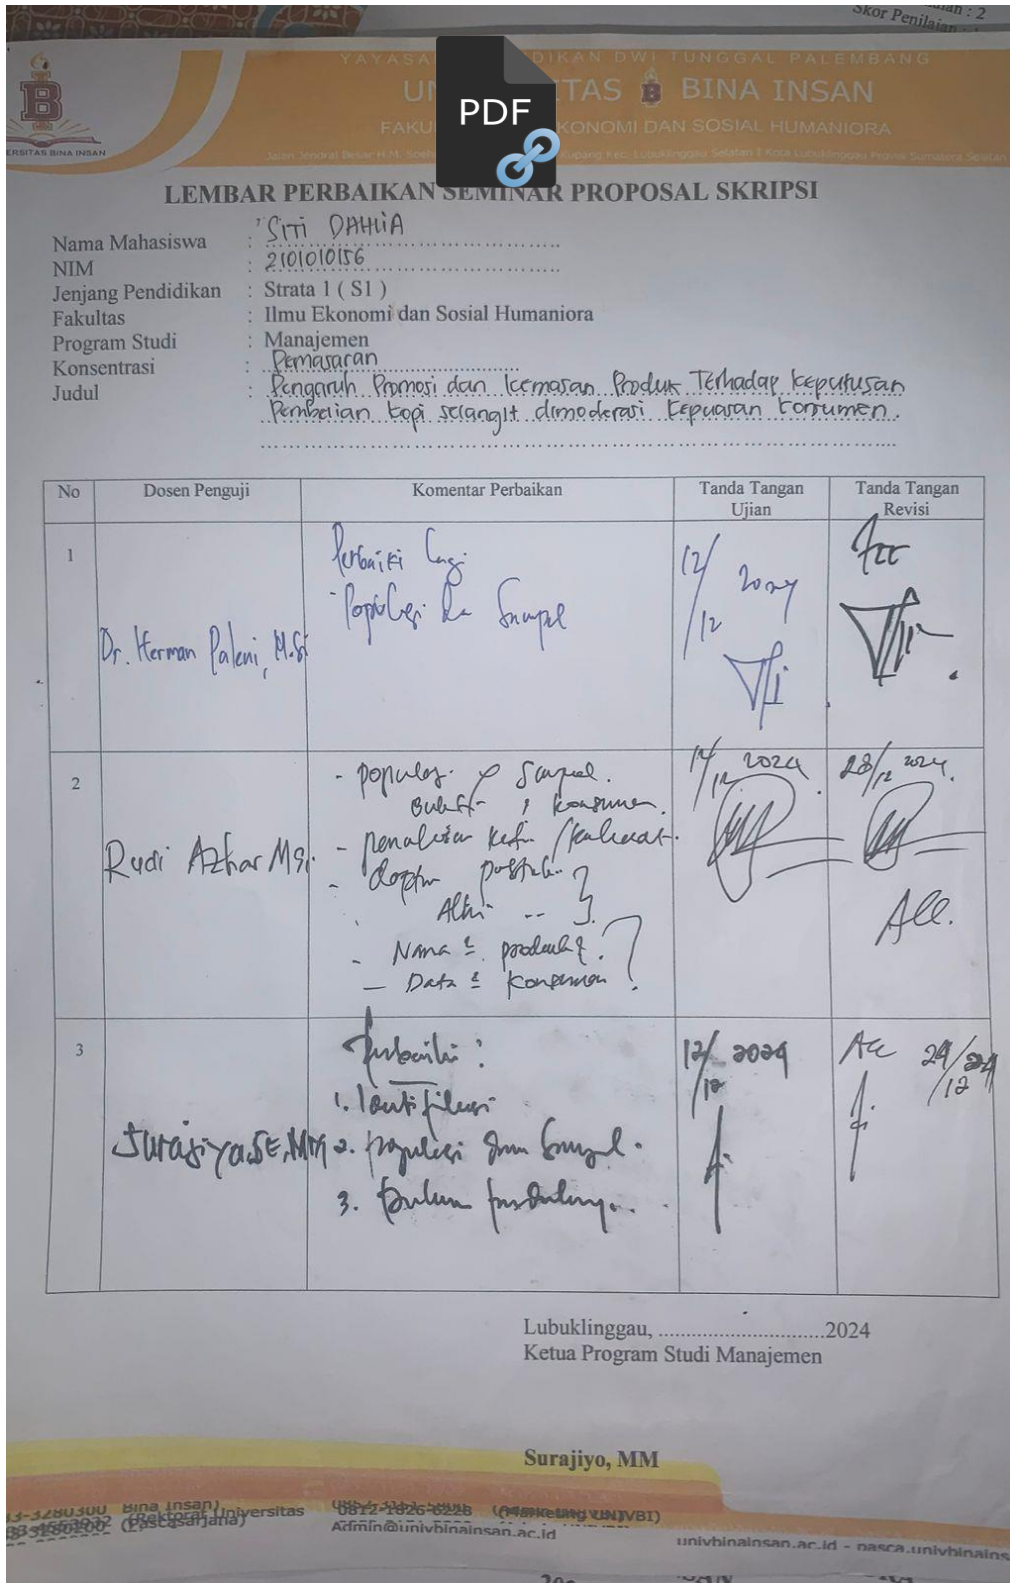 Skor Penilaian
YAYASA DIKAN DWI TUNGGAL PALEMBANG
UN ITAS BINA INSAN
FAKU KONOMI DAN SOSIAL HUMANIORA
ERSITAS BINA INSAN
Jalan Jendral Besar H.M. Kupang Kec. Lubuklinggau Selatan I Kota Lubuklinggau Provinsi Sumatera Selatan
PDF
LEMBAR PERBAIKAN SEMINAR PROPOSAL SKRIPSI
Nama Mahasiswa : SITI DAHLIA
NIM : 2101010156
Jenjang Pendidikan : Strata 1 ( S1 )
Fakultas : Ilmu Ekonomi dan Sosial Humaniora
Program Studi : Manajemen
Konsentrasi : Pemasaran
Judul : Pengaruh Promosi dan Kemasan Produk Terhadap Keputusan
Pembelian Kopi selangit dimoderasi Kepuasan Konsumen.
No Dosen Penguji Komentar Perbaikan Tanda Tangan Ujian Tanda Tangan Revisi
1 Dr. Herman Paleni, M.Si
Perbaiki lagi
- Populasi dan Sampel
12/12 2024
Acc
2 Rudi Azhar MSi.
- populasi & Sampel.
konsumen
- penulisan
- daftar pustaka
- Nama produk?
- Data konsumen?
17/12 2024
28/12 2024.
Acc.
3 Surajiya, SE, MM
Perbaiki :
1. Identifikasi
2. populasi dan Sampel.
3.
12/12 2024
Acc 24/12 24
Lubuklinggau, ..............................2024
Ketua Program Studi Manajemen
Surajiyo, MM
3-3280300 Bina Insan)
(Rektorat Universitas 0812-1626-6226 (Marketing UNIVBI)
33-3280200- (Pascasarjana) Admin@univbinainsan.ac.id
univbinainsan.ac.id - pasca.univbinains